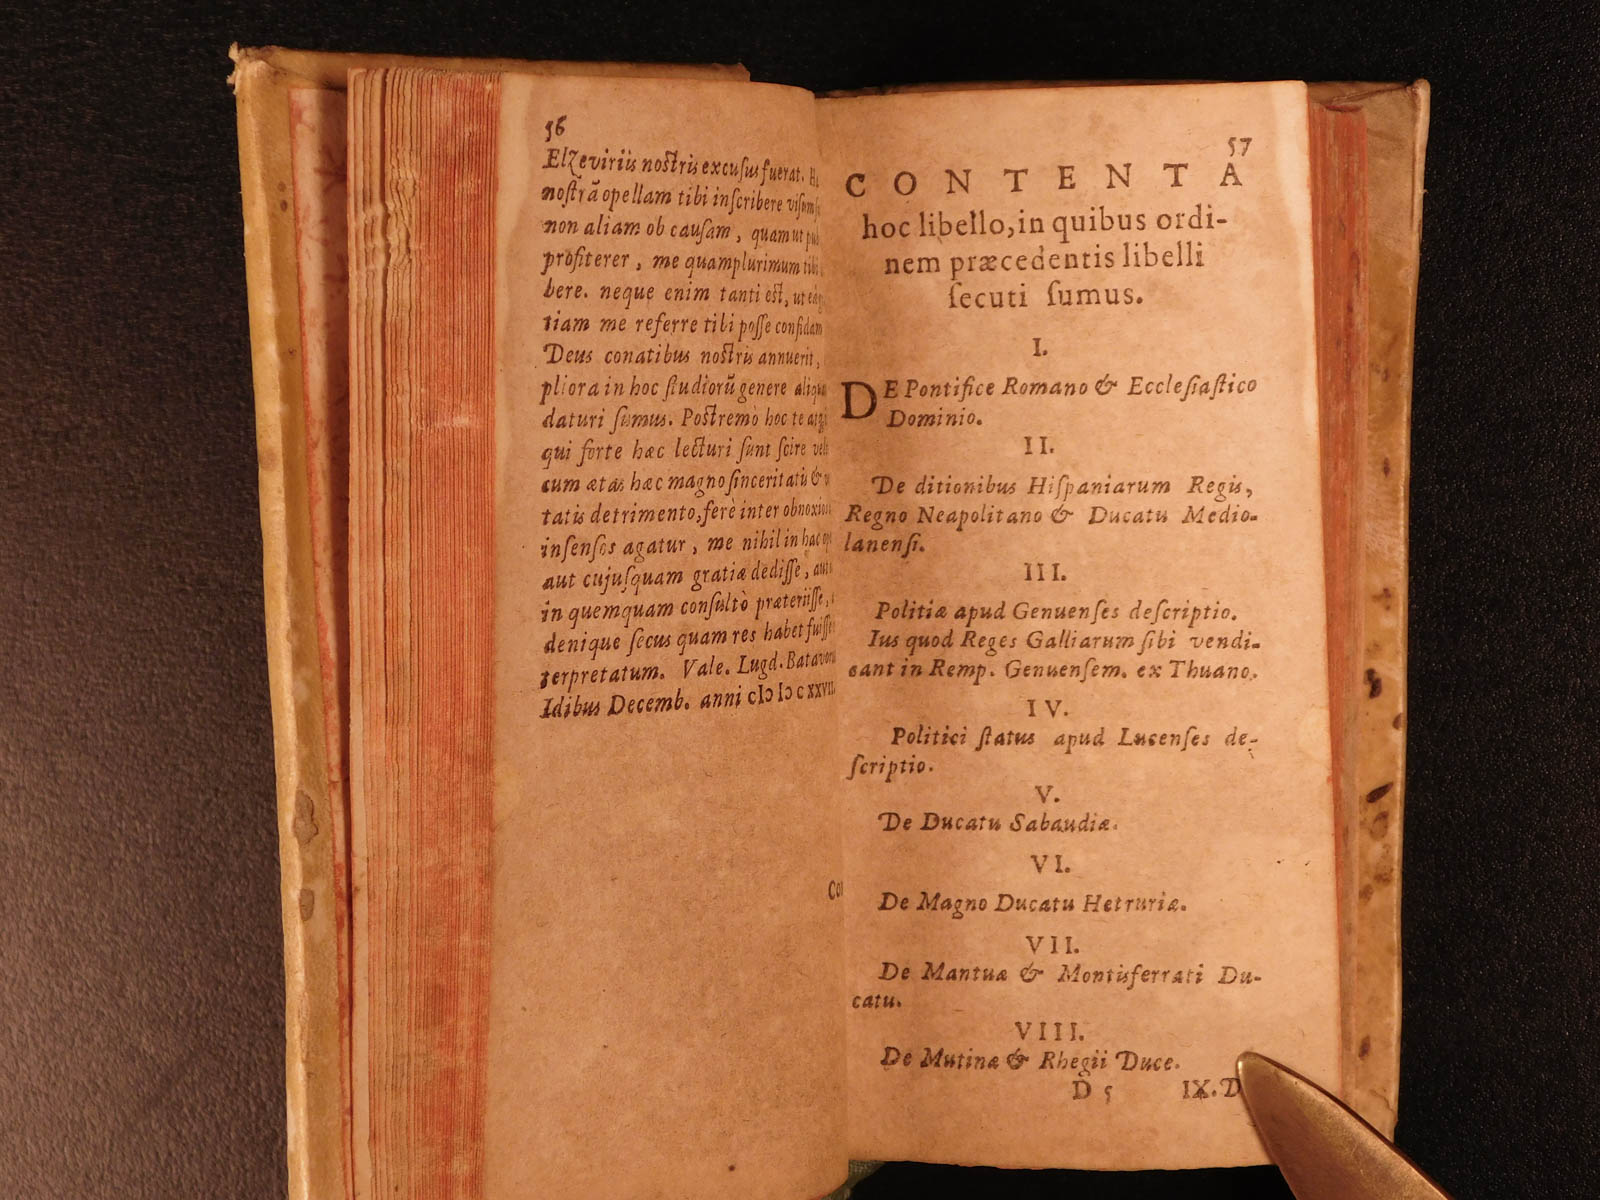 56
Elzeviriis nostris excusus fuerat.
nostrā opellam tibi inscribere visum
non aliam ob causam, quam ut
profiterer, me quamplurimum tibi
bere. neque enim tanti est, ut
tiam me referre tibi posse confidam
Deus conatibus nostris annuerit,
pliora in hoc studiorũ genere
daturi sumus. Postremò hoc te
qui forte hæc lecturi sunt scire
cum ætas hæc magno sinceritatis &
tatis detrimento, ferè inter
insensos agatur, me nihil in hac
aut cujusquam gratiæ dedisse,
in quemquam consultò præteriisse,
denique secus quam res habet
terpretatum. Vale. Lugd. Batavor
Idibus Decemb. anni cIↄ Iↄ c xxvii
57
CONTENTA
hoc libello, in quibus ordi-
nem præcedentis libelli
secuti sumus.
I.
DE Pontifice Romano & Ecclesiastico
Dominio.
II.
De ditionibus Hispaniarum Regis,
Regno Neapolitano & Ducatu Medio-
lanensi.
III.
Politiæ apud Genuenses descriptio.
Ius quod Reges Galliarum sibi vendi-
cant in Remp. Genuensem. ex Thuano.
IV.
Politici status apud Lucenses de-
scriptio.
V.
De Ducatu Sabaudiæ.
VI.
De Magno Ducatu Hetruriæ.
VII.
De Mantuæ & Montisferrati Du-
catu.
VIII.
De Mutinæ & Rhegii Duce.
D 5 IX. D